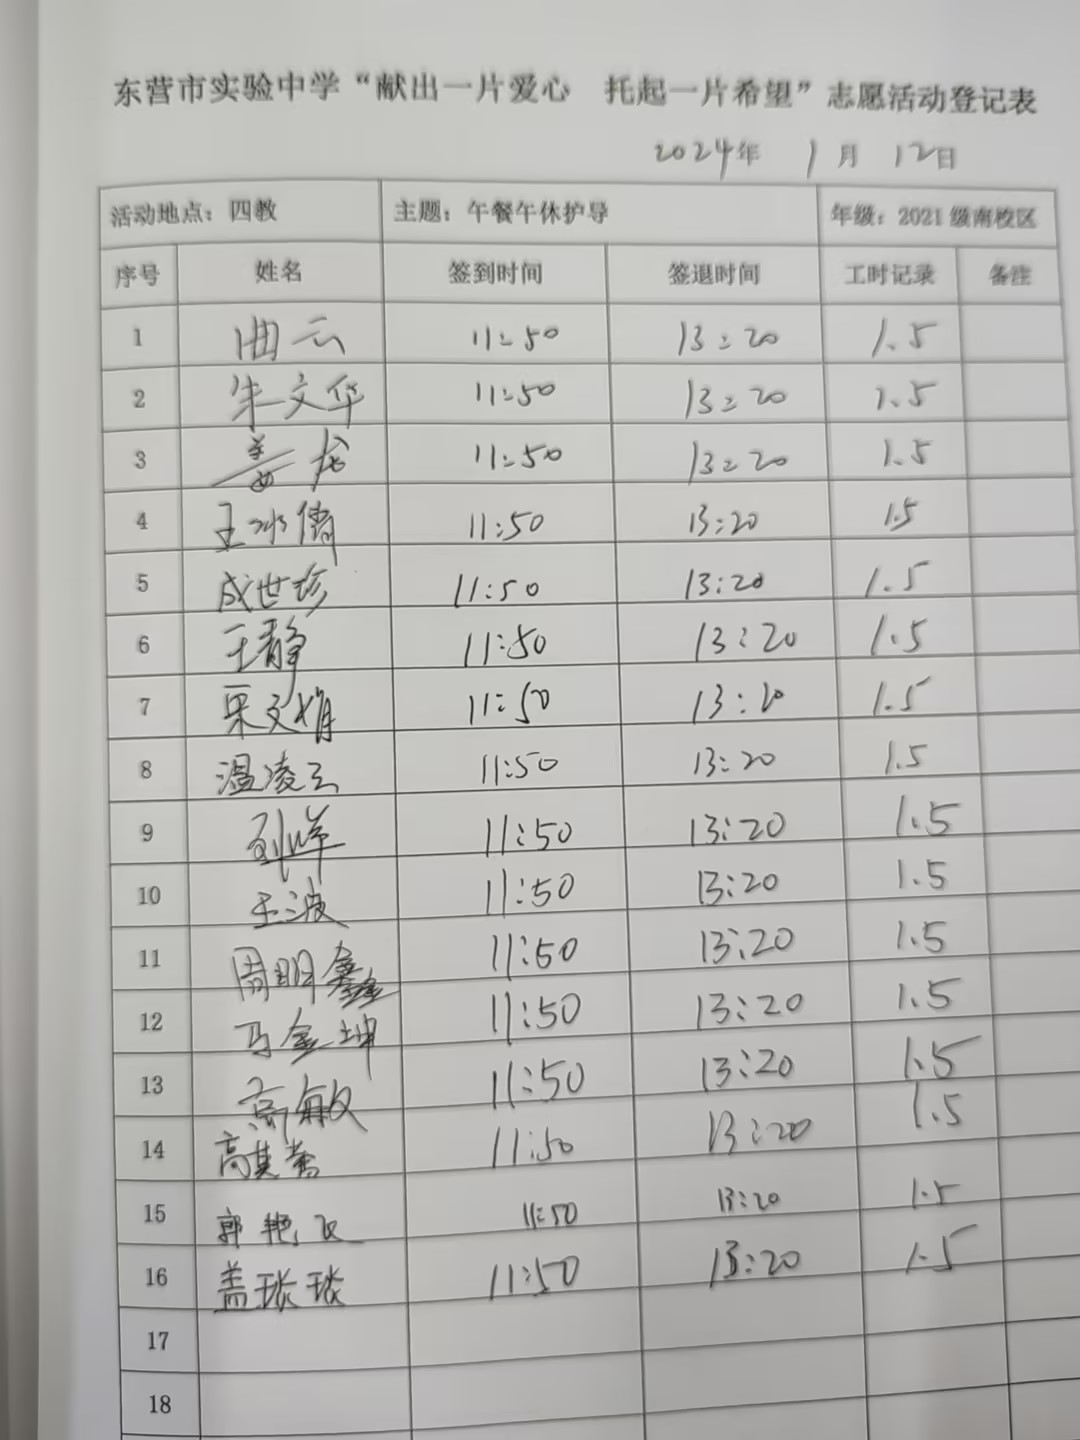 东营市实验中学“献出一片爱心 托起一片希望”志愿活动登记表
2024年 1月 12日
活动地点：四教 主题：午餐午休护导 年级：2021级南校区
序号 姓名 签到时间 签退时间 工时记录 备注
1 曲云 11:50 13:20 1.5
2 朱文华 11:50 13:20 1.5
3 姜龙 11:50 13:20 1.5
4 王冰倩 11:50 13:20 1.5
5 成世珍 11:50 13:20 1.5
6 王静 11:50 13:20 1.5
7 文娟 11:50 13:20 1.5
8 温凌云 11:50 13:20 1.5
9 刘峰 11:50 13:20 1.5
10 王波 11:50 13:20 1.5
11 周明鑫 11:50 13:20 1.5
12 马金坤 11:50 13:20 1.5
13 高敏 11:50 13:20 1.5
14 高其 11:50 13:20 1.5
15 郭艳飞 11:50 13:20 1.5
16 盖琰琰 11:50 13:20 1.5
17
18